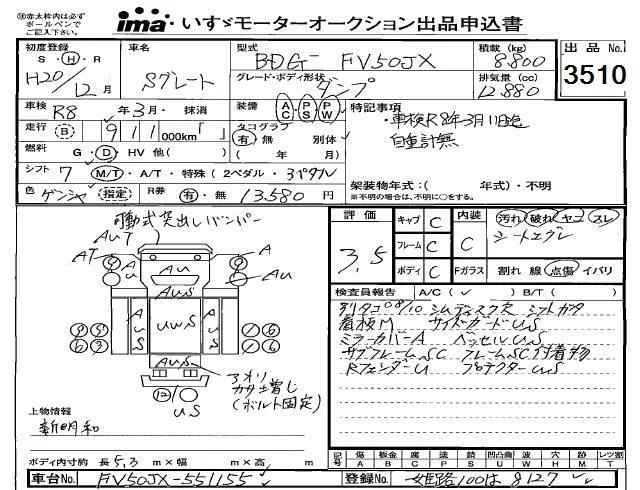 ※赤太枠内は必ず
ボールペンで
ご記入下さい。
ima いすゞモーターオークション出品申込書
初度登録 車名 型式 積載 (kg) 出品No.
S・H・R Sグレート BDG- FV50JX 8.800 3510
H20/12月 グレード・ボディ形状 排気量 (cc)
ダンプ 12.880
車検 R8 年 3 月・ 抹消 装備 AC・PS・PW 特記事項
走行 B 911 000km「 」 タコグラフ ・車検R8年3月11日迄
有・無 別体 自重計無
燃料 G・D・HV 他( ) ( 年 月)
シフト 7 M/T・A/T・特殊 (2ペダル・3ペタル
架装物年式:( 年式)・不明
色 ゲンシャ 指定 R券 有・無 13.580 円 ※不明の場合は、不明に○をする。
可動式突出しバンパー
評価 キャブ C 内装 C 汚れ 破れ ヤコ スレ
3.5 フレーム C シートエグレ
ボディ C Fガラス 割れ 線 点傷 イバリ
AUT
AT A
AU AU
AUS
AUS UWS AUS
AUS
US
アオリ
カサ増し
(ボルト固定)
検査員報告 A/C ( ✓ ) B/T ( )
別タコ08/10 シムディスク欠 シフトガタ
看板M サイドガードUS
ミラーカバーA ベッセルUS
サブフレームSC フレームSC付着物
RフェンダーU プロテクターUS
上物情報
新明和
ボディ内寸約 長 5.3 m×幅 m×高 m
記号 傷 板金 腐 塗 錆 凹凸曲 波 穴 跡 レツ割
A B C P S U W H M T
車台No. FV50JX-551155 登録No. 姫路100は8127